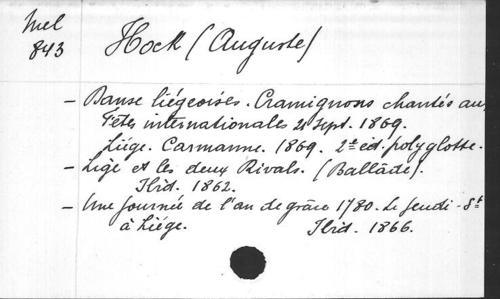 Mel
843
Hock (Auguste)
- Danse liégeoises. Cramignons chantés aux
Fêtes internationales 21 sept. 1869.
Liége. Carmanne. 1869. 2e éd. polyglotte.
- Ligè et les deux Rivals. (Ballade).
Ibid. 1862.
- Une Journée de l'an de grâce 1780. Le Jeudi-St
à Liége. Ibid. 1866.